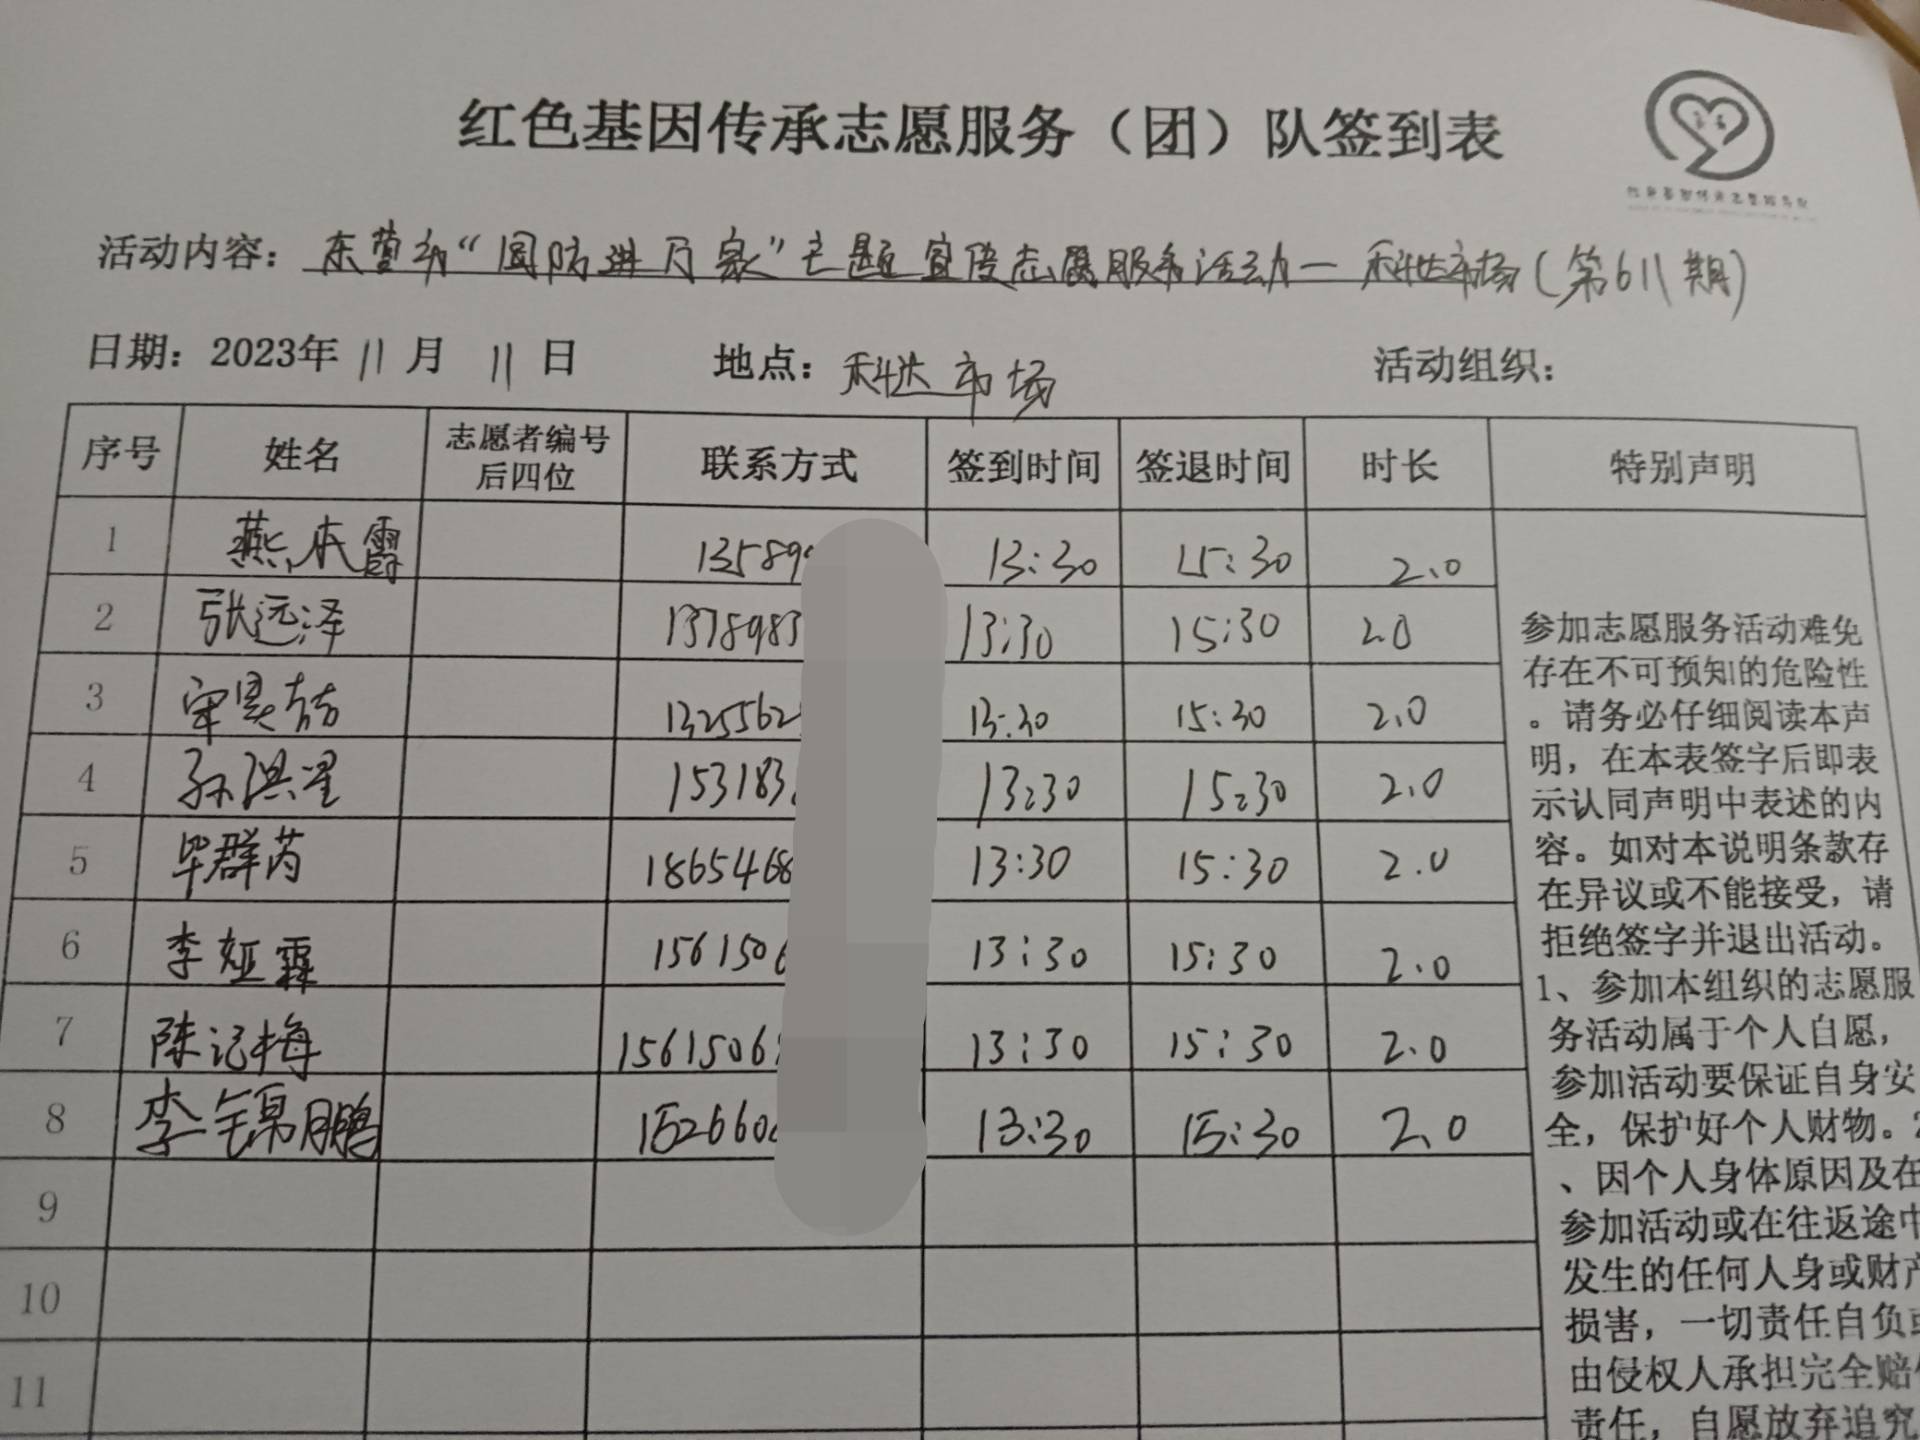 红色基因传承志愿服务（团）队签到表
活动内容：东营市“国防进万家”主题宣传志愿服务活动一科达市场(第611期)
日期：2023年 11 月 11 日 地点：科达市场 活动组织：
序号 姓名 志愿者编号后四位 联系方式 签到时间 签退时间 时长 特别声明
1 燕本霞 13589 13:30 15:30 2.0
2 张远泽 1378983 13:30 15:30 2.0
3 1325562 13:30 15:30 2.0
4 孙洪星 153183 13:30 15:30 2.0
5 毕群芮 1865468 13:30 15:30 2.0
6 李娅霖 156150 13:30 15:30 2.0
7 陈记梅 1561506 13:30 15:30 2.0
8 李锦鹏 152660 13:30 15:30 2.0
9
10
11
参加志愿服务活动难免
存在不可预知的危险性
。请务必仔细阅读本声
明，在本表签字后即表
示认同声明中表述的内
容。如对本说明条款存
在异议或不能接受，请
拒绝签字并退出活动。
1、参加本组织的志愿服
务活动属于个人自愿，
参加活动要保证自身安
全，保护好个人财物。2
、因个人身体原因及在
参加活动或在往返途中
发生的任何人身或财产
损害，一切责任自负或
由侵权人承担完全赔偿
责任，自愿放弃追究